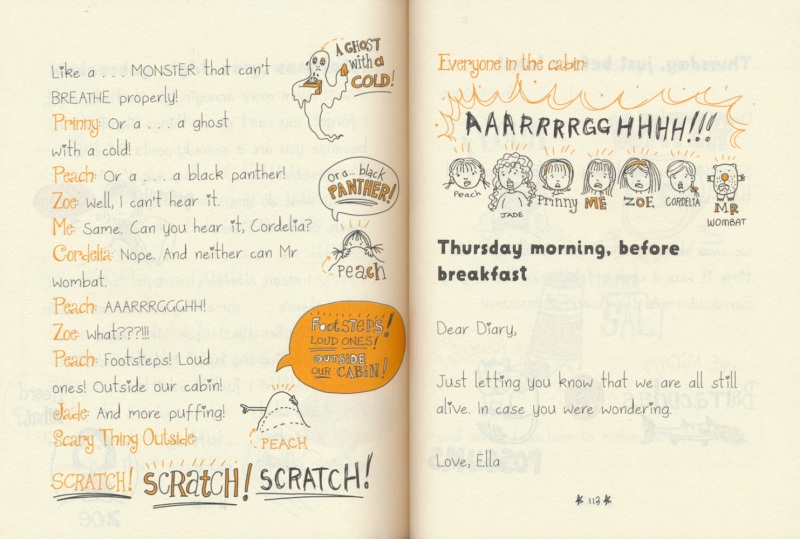 Like a . . . MONSTER that can't
BREATHE properly!
Prinny: Or a . . . a ghost
with a cold!
Peach: Or a . . . a black panther!
Zoe: Well, I can't hear it.
Me: Same. Can you hear it, Cordelia?
Cordelia: Nope. And neither can Mr
Wombat.
Peach: AAARRRGGGHH!
Zoe: What???!!!
Peach: Footsteps! Loud
ones! Outside our cabin!
Jade: And more puffing!
Scary Thing Outside:
SCRATCH! SCRATCH! SCRATCH!
A GHOST
with a
COLD!
Or a... black
PANTHER!
Peach
FootSTEPS!
LOUD ONES!
OUTSIDE
OUR CABIN!
PEACH
Everyone in the cabin:
AAARRRRGGHHHH!!!
Peach
JADE
Prinny
ME
ZOE
CORDELIA
MR
WOMBAT
Thursday morning, before
breakfast
Dear Diary,
Just letting you know that we are all still
alive. In case you were wondering.
Love, Ella
113